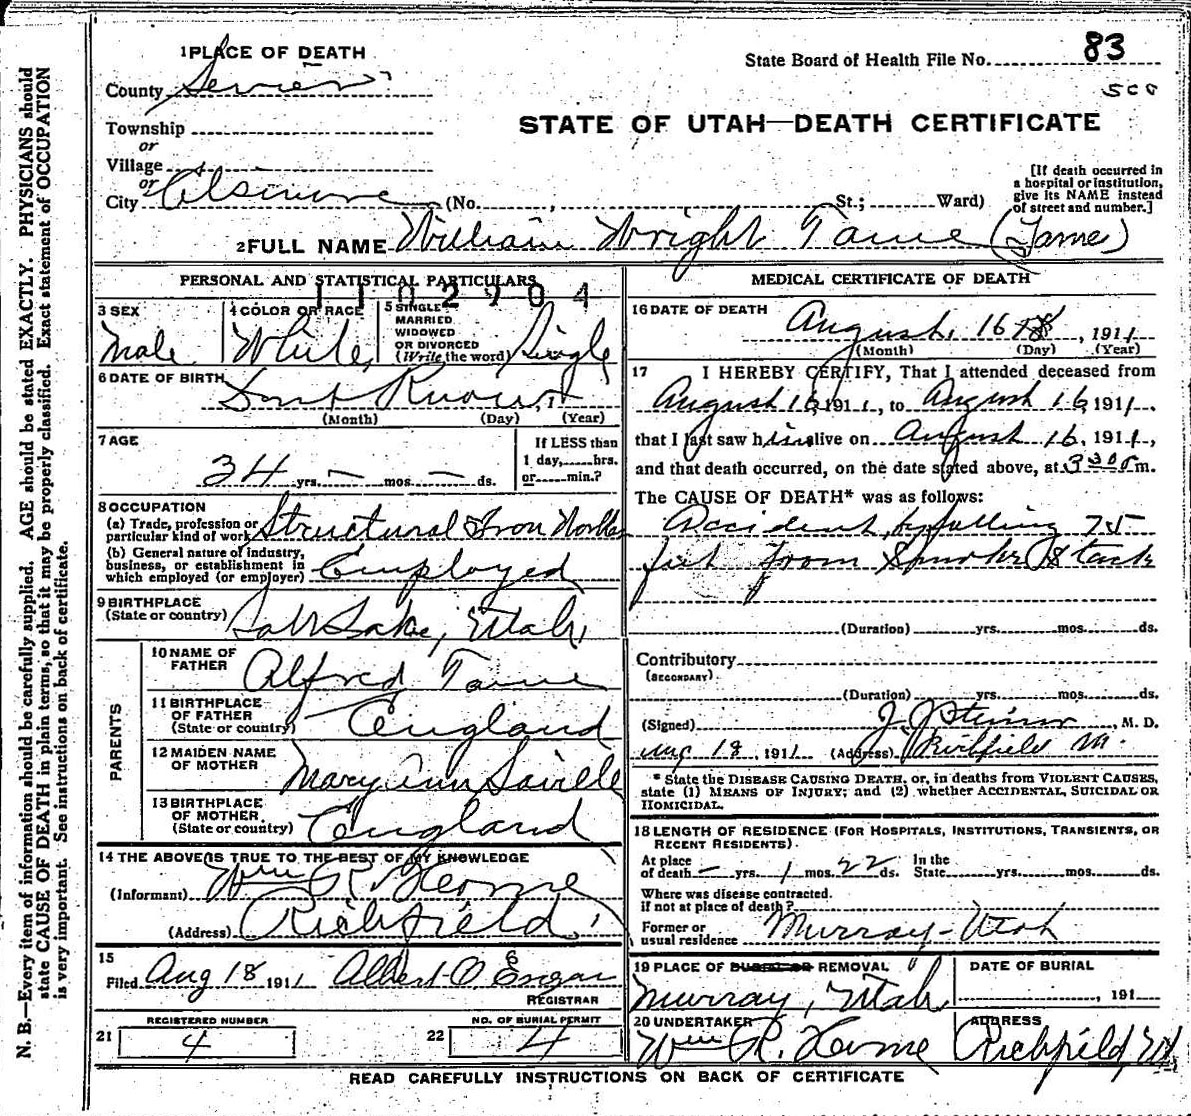 1 PLACE OF DEATH
County Sevier
State Board of Health File No. 83
Township
or
Village
or
City Elsinore (No. , St.; Ward)
STATE OF UTAH—DEATH CERTIFICATE
[If death occurred in
a hospital or institution,
give its NAME instead
of street and number.]
2 FULL NAME William Wright Tame (Tame)
PERSONAL AND STATISTICAL PARTICULARS
1102904
3 SEX
Male
4 COLOR OR RACE
White
5 SINGLE
MARRIED
WIDOWED
OR DIVORCED
(Write the word) Single
6 DATE OF BIRTH Dont Know, 1
(Month) (Day) (Year)
7 AGE
34 yrs. — mos. — ds.
If LESS than
1 day, hrs.
or min.?
8 OCCUPATION
(a) Trade, profession or
particular kind of work Structural Iron Worker
(b) General nature of industry,
business, or establishment in
which employed (or employer) Employed
9 BIRTHPLACE
(State or country) Salt Lake, Utah
PARENTS
10 NAME OF
FATHER Alfred Tame
11 BIRTHPLACE
OF FATHER
(State or country) England
12 MAIDEN NAME
OF MOTHER Mary Ann Saville
13 BIRTHPLACE
OF MOTHER
(State or country) England
14 THE ABOVE IS TRUE TO THE BEST OF MY KNOWLEDGE
(Informant) Wm R.
(Address) Richfield
15
Filed Aug 18 1911 Albert O
REGISTRAR
21 REGISTERED NUMBER
4
22 NO. OF BURIAL PERMIT
4
MEDICAL CERTIFICATE OF DEATH
16 DATE OF DEATH
August 16, 1911
(Month) (Day) (Year)
17 I HEREBY CERTIFY, That I attended deceased from
August 16 1911, to August 16 1911,
that I last saw him alive on August 16, 1911,
and that death occurred, on the date stated above, at 3 30 P m.
The CAUSE OF DEATH* was as follows:
Accident, by falling 75
feet from Smoke Stack
(Duration) yrs. mos. ds.
Contributory
(SECONDARY)
(Duration) yrs. mos. ds.
(Signed) J J Steiner, M. D.
Aug 18, 1911 (Address) Richfield
* State the DISEASE CAUSING DEATH, or, in deaths from VIOLENT CAUSES,
state (1) MEANS OF INJURY; and (2) whether ACCIDENTAL, SUICIDAL OR
HOMICIDAL.
18 LENGTH OF RESIDENCE (FOR HOSPITALS, INSTITUTIONS, TRANSIENTS, OR
RECENT RESIDENTS).
At place
of death — yrs. 1 mos. 22 ds. In the
State yrs. mos. ds.
Where was disease contracted.
if not at place of death?
Former or
usual residence Murray - Utah
19 PLACE OF BURIAL OR REMOVAL
Murray, Utah
DATE OF BURIAL
, 191
20 UNDERTAKER
Wm R.
ADDRESS
Richfield, Ut
READ CAREFULLY INSTRUCTIONS ON BACK OF CERTIFICATE
N. B.—Every item of information should be carefully supplied. AGE should be stated EXACTLY. PHYSICIANS should
state CAUSE OF DEATH in plain terms, so that it may be properly classified. Exact statement of OCCUPATION
is very important. See instructions on back of certificate.